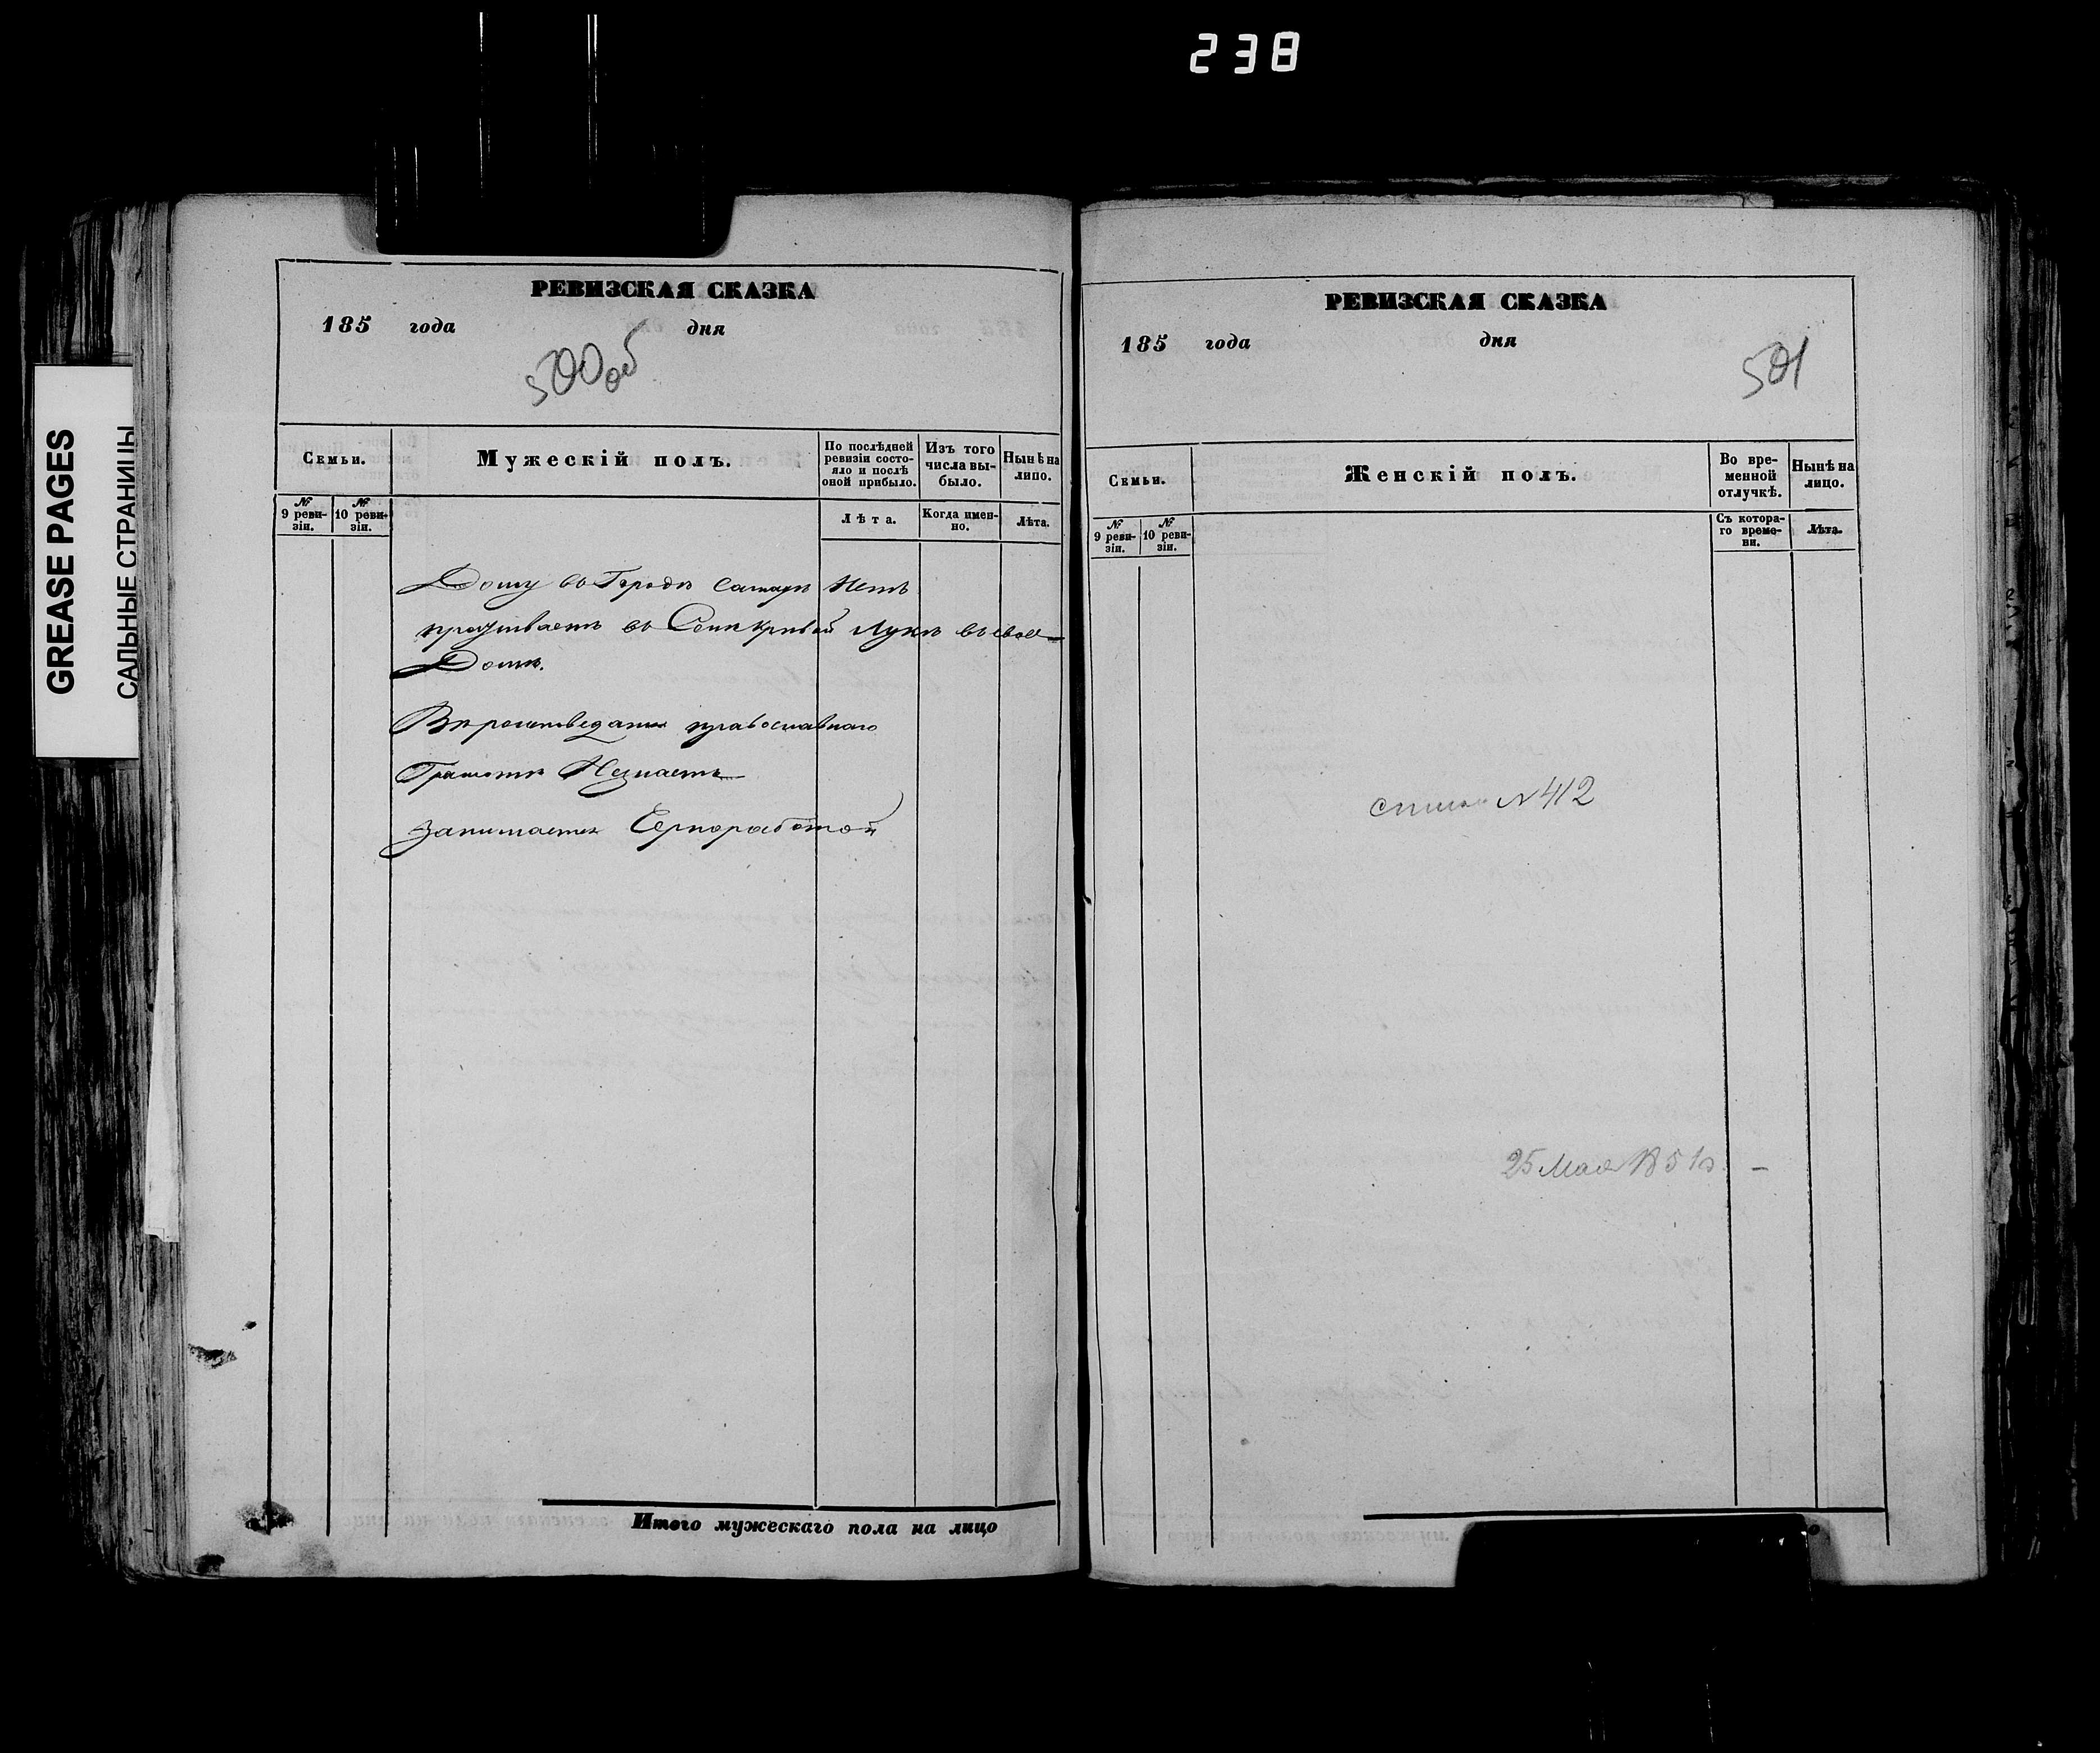 238
GREASE PAGES
САЛЬНЫЕ СТРАНИЦЫ
РЕВИЗСКАЯ СКАЗКА
185 года дня
500 об
Семьи.
Мужескій полъ.
По послѣдней ревизіи состо-
яло и послѣ оной прибыло.
Изъ того числа вы-
было.
Нынѣ на лицо.
№ 9 реви-
зіи.
№ 10 реви-
зіи.
Лѣта.
Когда имен-
но.
Лѣта.
Дому въ Городѣ Самарѣ Нетъ
проживаетъ въ Селѣ Кривой Лукѣ въ свое
Домѣ.
Вероисповедания православнаго
Грамотѣ Незнаетъ
Занимается Черноработой
Итого мужескаго пола на лицо
РЕВИЗСКАЯ СКАЗКА
185 года дня
501
Семьи.
Женскій полъ.
Во вре-
менной
отлучкѣ.
Нынѣ на
лицо.
№ 9 реви-
зіи.
№ 10 реви-
зіи.
Съ котора-
го време-
ни.
Лѣта.
№ 412
25 Мая 1851